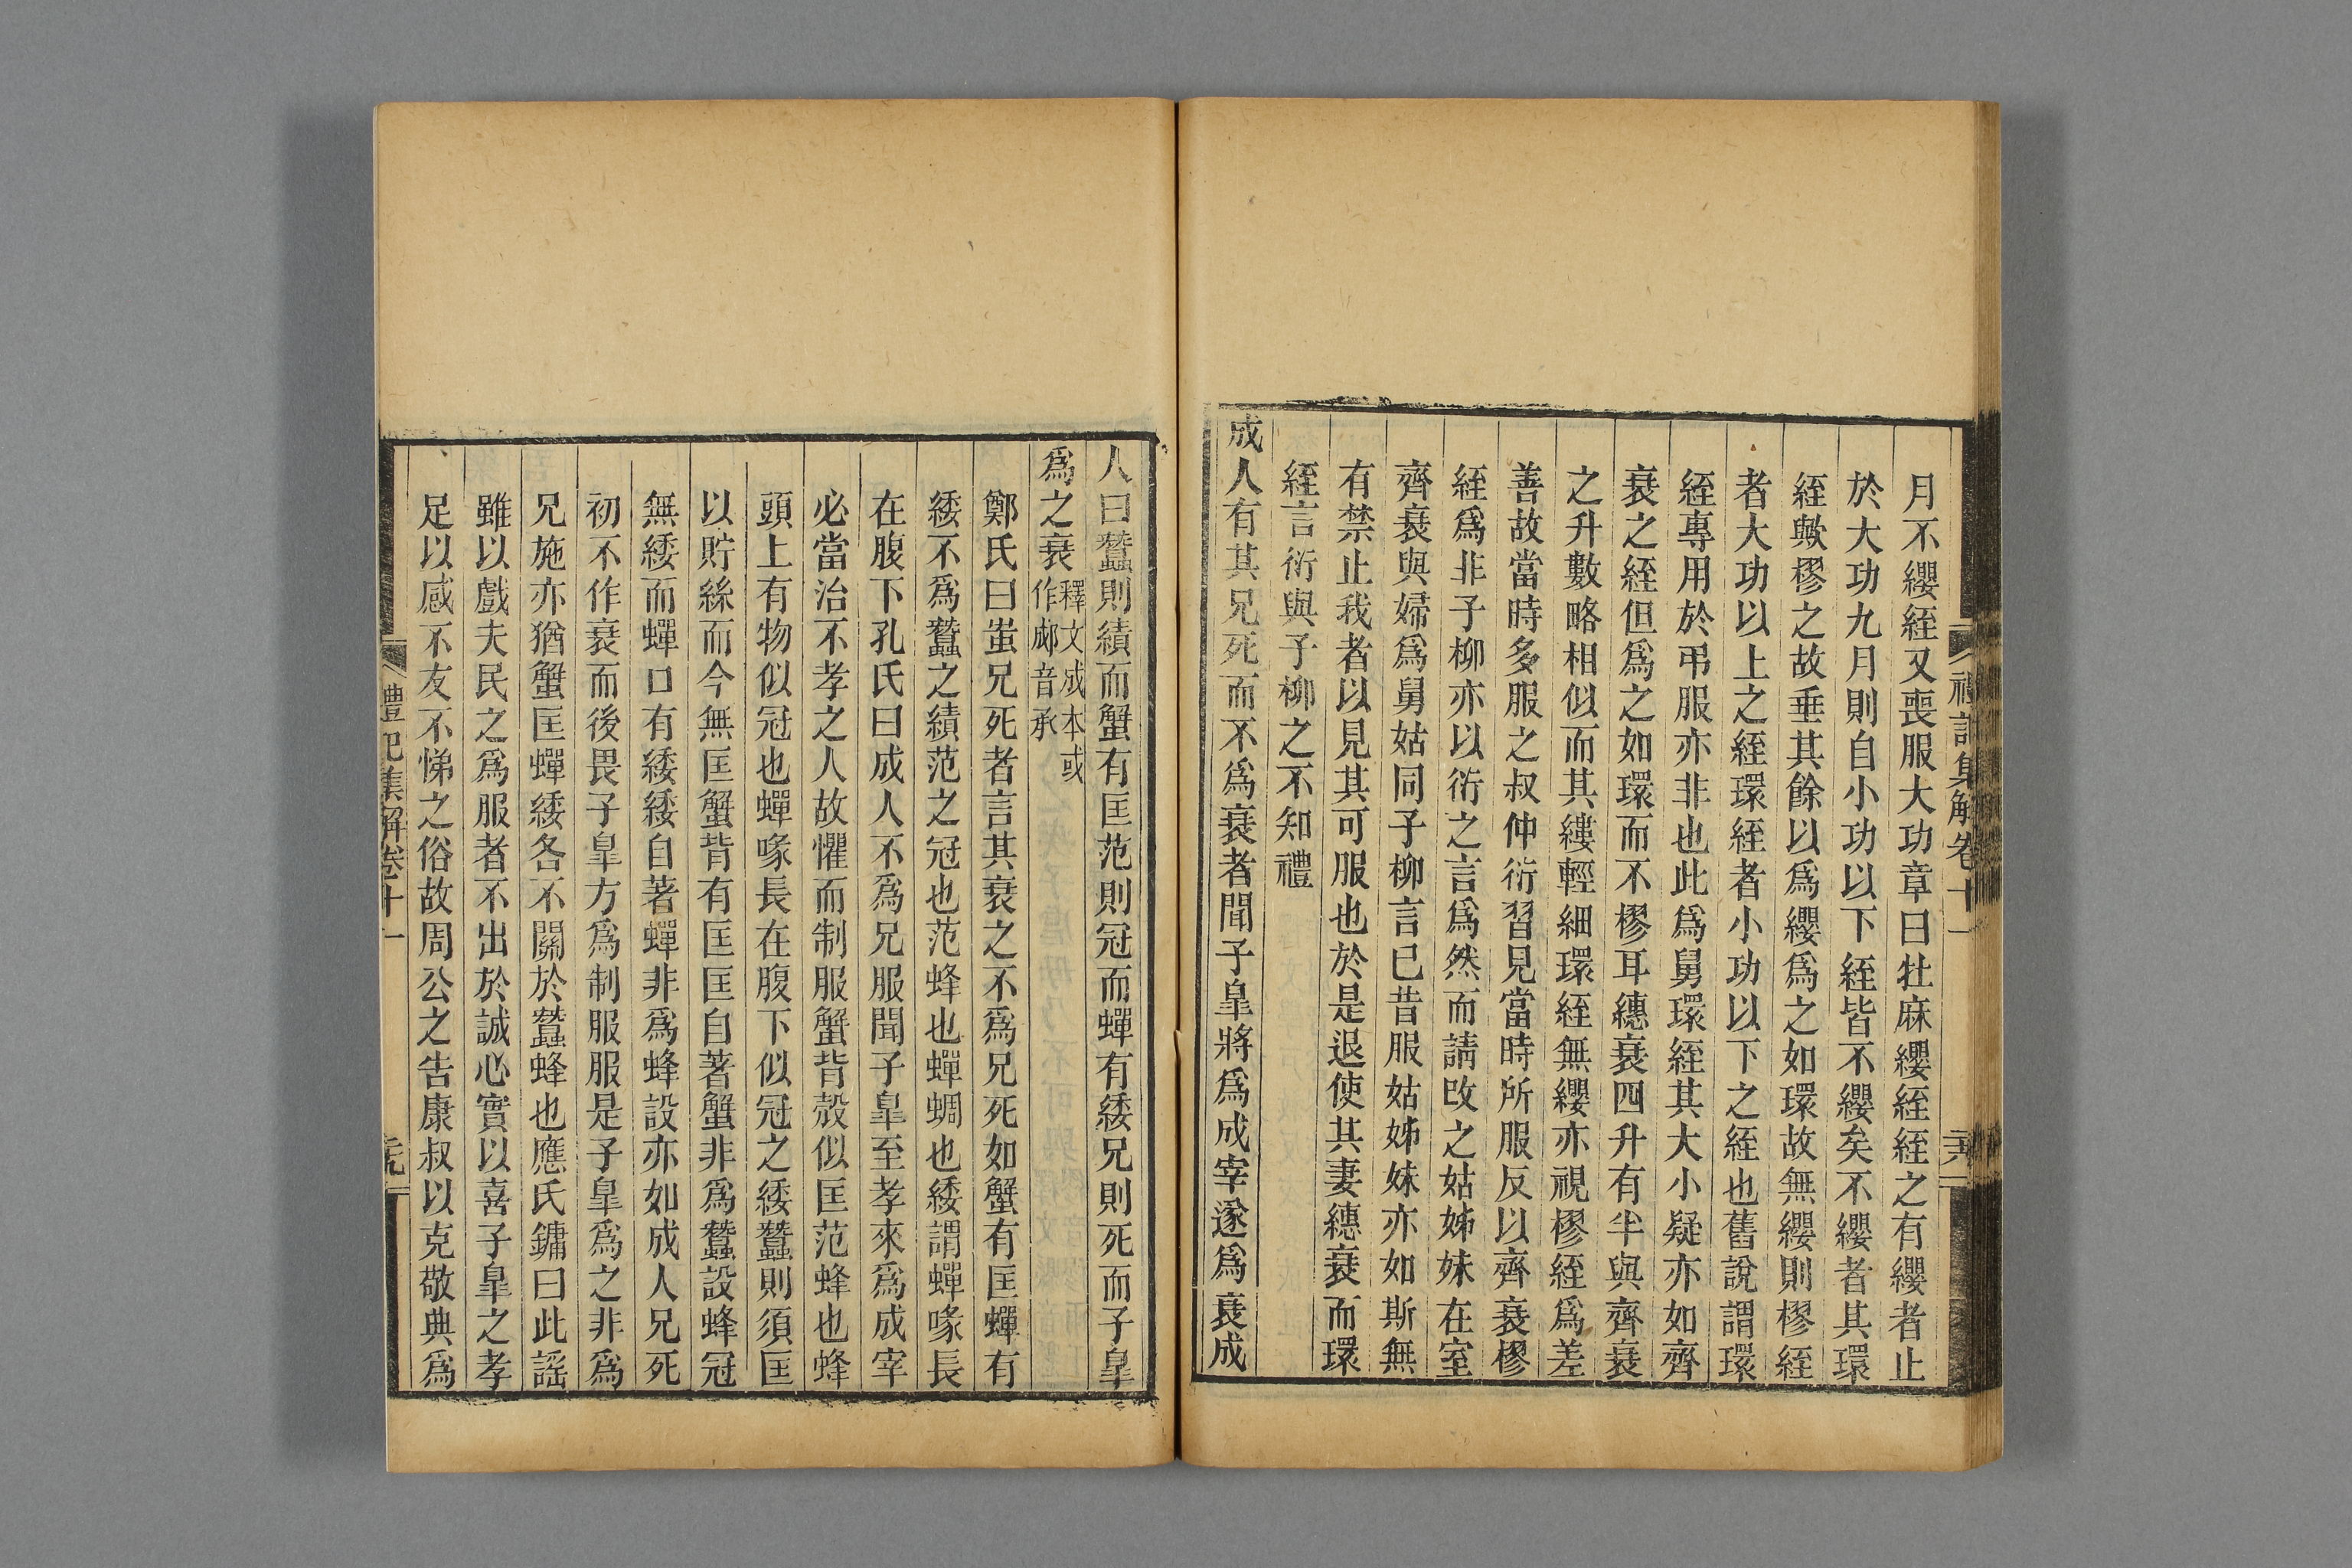 月不纓絰又喪服大功章曰牡麻纓絰絰之有纓者止
於大功九月則自小功以下絰皆不纓矣不纓者其環
絰歟樛之故垂其餘以爲纓爲之如環故無纓則樛絰
者大功以上之絰環絰者小功以下之絰也舊說謂環
絰專用於弔服亦非也此爲舅環絰其大小疑亦如齊
衰之絰但爲之如環而不樛耳繐衰四升有半與齊衰
之升數略相似而其縷輕細環絰無纓亦視樛絰爲差
善故當時多服之叔仲衍習見當時所服反以齊衰樛
絰爲非子柳亦以衍之言爲然而請改之姑姊妹在室
齊衰與婦爲舅姑同子柳言已昔服姑姊妹亦如斯無
有禁止我者以見其可服也於是退使其妻繐衰而環
絰言衍與子柳之不知禮
成人有其兄死而不爲衰者聞子皐將爲成宰遂爲衰成
禮記集解卷十一
人曰蠶則績而蟹有匡范則冠而蟬有緌兄則死而子皐
爲之衰釋文成本或作郕音承
鄭氏曰蚩兄死者言其衰之不爲兄死如蟹有匡蟬有
緌不爲蠶之績范之冠也范蜂也蟬蜩也緌謂蟬喙長
在腹下孔氏曰成人不爲兄服聞子皐至孝來爲成宰
必當治不孝之人故懼而制服蟹背殼似匡范蜂也蜂
頭上有物似冠也蟬喙長在腹下似冠之緌蠶則須匡
以貯絲而今無匡蟹背有匡匡自著蟹非爲蠶設蜂冠
無緌而蟬口有緌緌自著蟬非爲蜂設亦如成人兄死
初不作衰而後畏子皐方爲制服服是子皐爲之非爲
兄施亦猶蟹匡蟬緌各不關於蠶蜂也應氏鏞曰此謡
雖以戲夫民之爲服者不出於誠心實以喜子皐之孝
足以感不友不悌之俗故周公之告康叔以克敬典爲
禮記集解卷十一